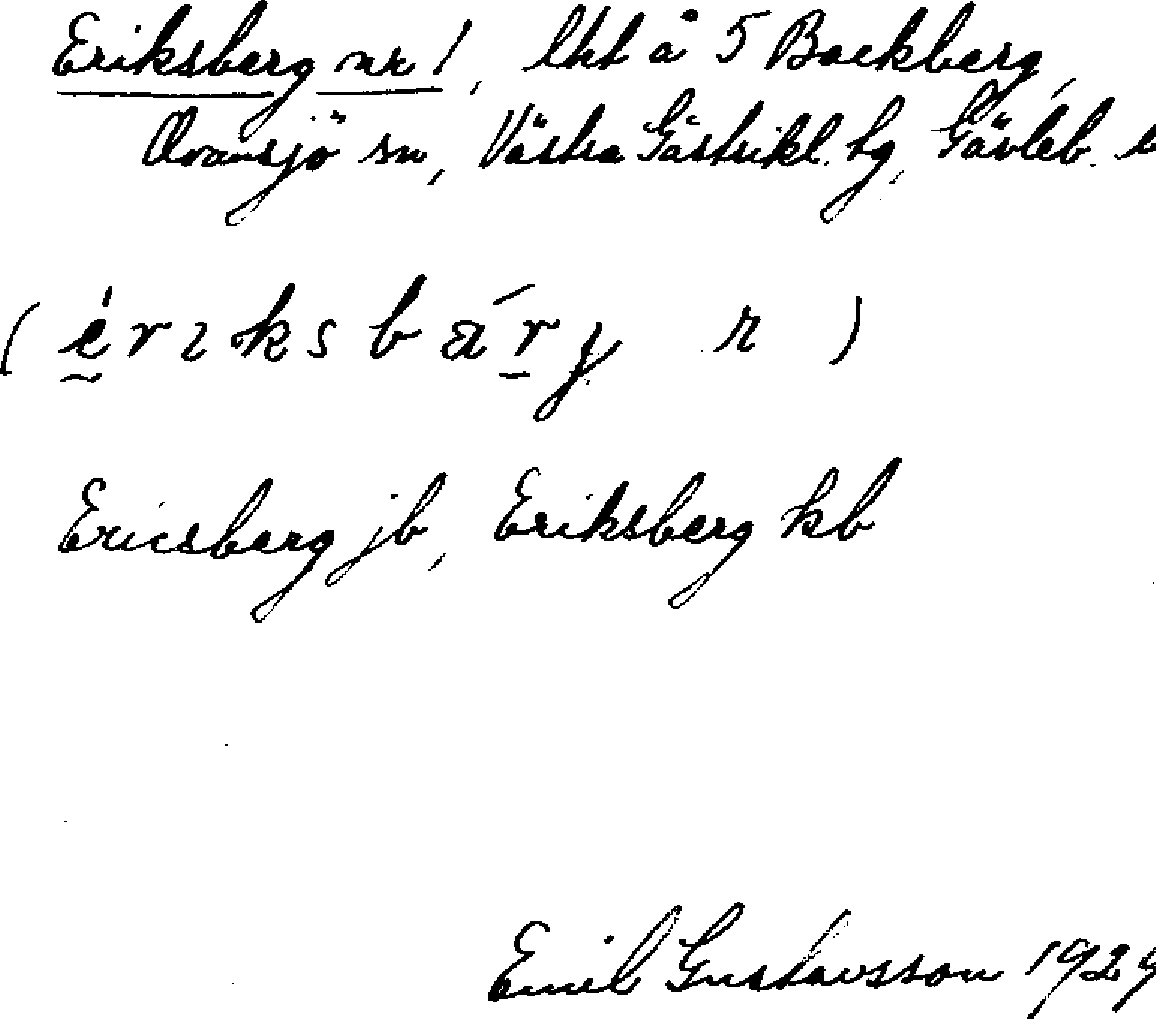 Eriksberg nr 1, lht å 5 Backberg,
Ovansjö sn, Västra Gästrikl. hg, Gävleb. l
(ériksbárg r)
Ericsberg jb, Eriksberg kb
Emil Gustavsson 1929